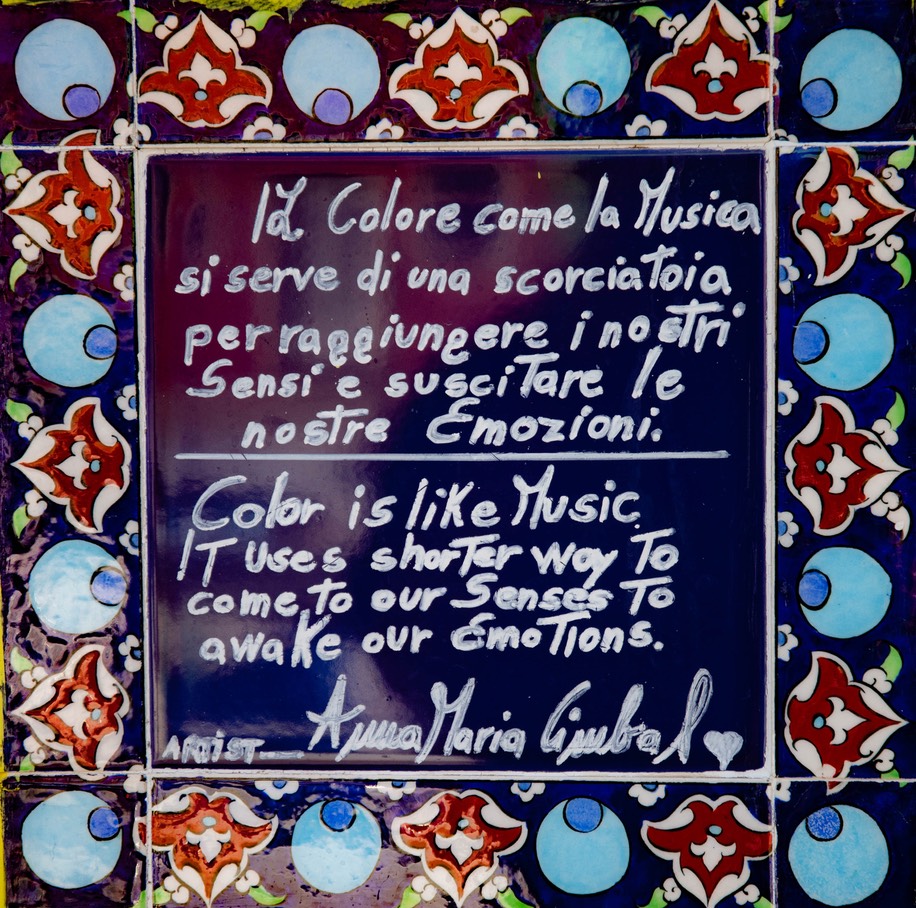 Il Colore come la Musica
si serve di una scorciatoia
per raggiungere i nostri
Sensi e suscitare le
nostre Emozioni.
Color is like Music
IT uses shorTer way To
come to our Senses To
awake our EmoTions.
ARTIST Anna Maria